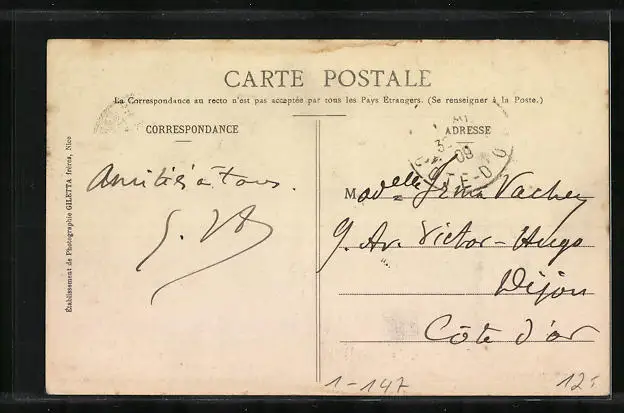 CARTE POSTALE
La Correspondance au recto n'est pas acceptée par tous les Pays Étrangers. (Se renseigner à la Poste.)
CORRESPONDANCE
ADRESSE
Établissement de Photographie GILETTA frères, Nice
Amitiés à Tous.
09
CÔTE-D'O
Madelle Irma Vacher
9. Av. Victor-Hugo
Dijon
Côte d'or
1-147